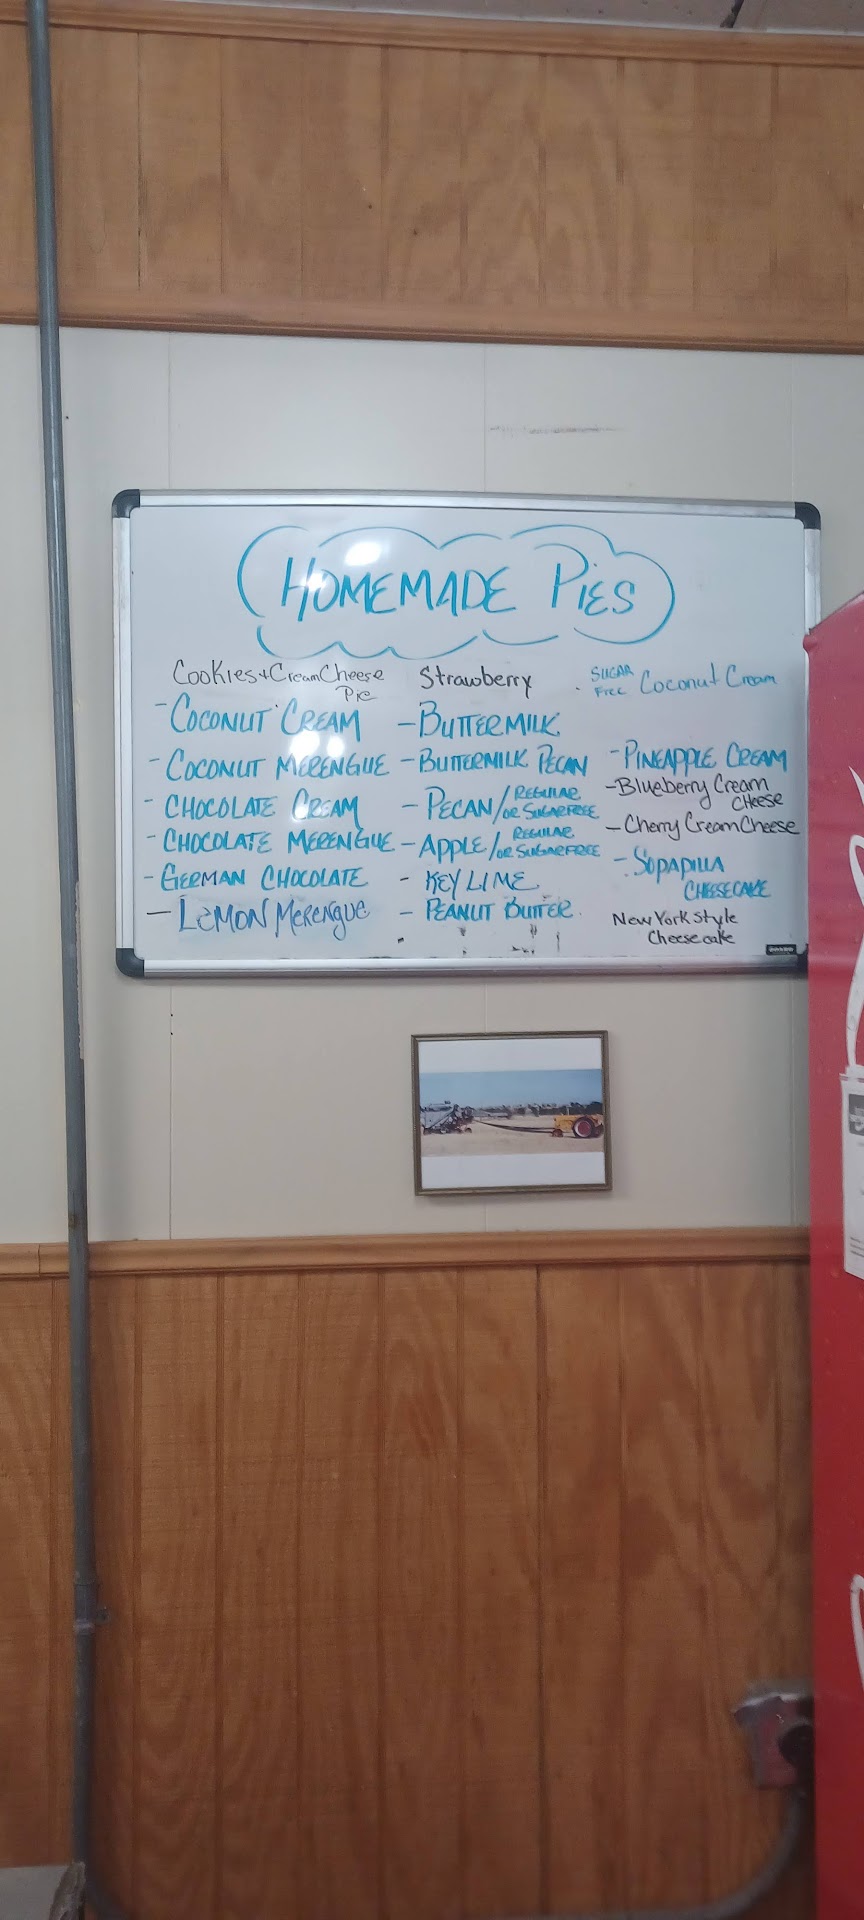 HOMEMADE PIES
Cookies + Cream Cheese
Pie
- COCONUT CREAM
- COCONUT MERENGUE
- CHOCOLATE CREAM
- CHOCOLATE MERENGUE
- GERMAN CHOCOLATE
- LEMON MERENGUE
Strawberry
- BUTTERMILK
- BUTTERMILK PECAN
- PECAN/REGULAR
OR SUGARFREE
- APPLE/REGULAR
OR SUGARFREE
- KEY LIME
- PEANUT BUTTER
SUGAR
FREE Coconut Cream
- PINEAPPLE CREAM
- Blueberry Cream
CHEESE
- Cherry Cream Cheese
- SOPAPILLA
CHEESECAKE
New York Style
Cheesecake